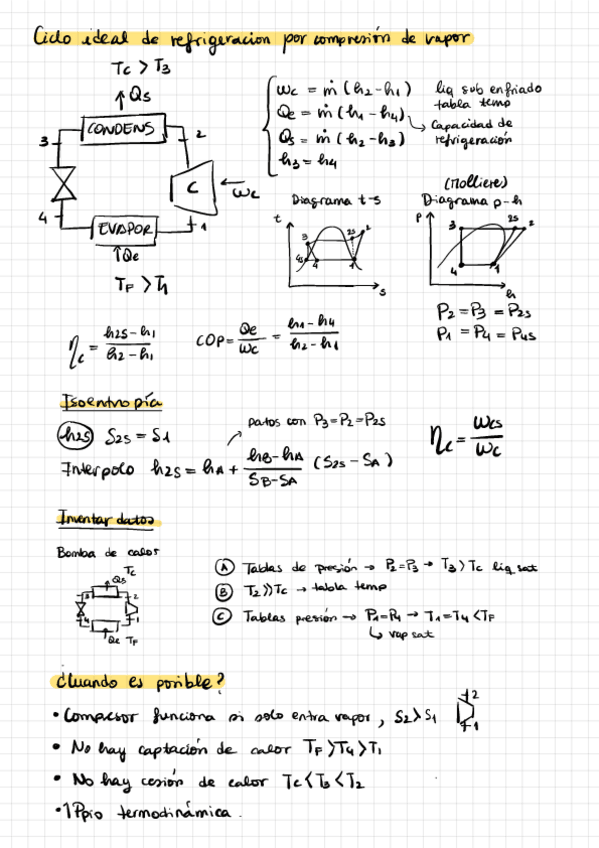 Ciclo ideal de refrigeracion por compresión de vapor
Tc > T3
↑Qs
CONDENS
3
2
C
← wc
4
1
EVAPOR
↑Qe
TF > T1
wc = ṁ (h2-h1)
Qe = ṁ (h1-h4)
Qs = ṁ (h2-h3)
h3 = h4
liq sub enfriado
tabla temp
Capacidad de
refrigeración
Diagrama t-s
t
3
2s
2
4s
4
1
s
(Molliere)
Diagrama p-h
P
3
2s
2
4
1
h
P2 = P3 = P2s
P1 = P4 = P4s
ηc = h2s-h1 / h2-h1
COP = Qe / wc = h1-h4 / h2-h1
Isoentropía
h2s S2s = S1
datos con P3=P2=P2s
Interpolo h2s = hA + hB-hA / SB-SA (S2s - SA)
ηc = wcs / wc
Inventar datos
Bomba de calor
Tc
Qs
3
2
4
1
Qe TF
A Tablas de presión → P2=P3 → T3 > Tc liq sat
B T2 >> Tc → tabla temp
C Tablas presión → P1=P4 → T1=T4 < TF
↳ vap sat
¿Cuando es posible?
• Compresor funciona si solo entra vapor, S2 > S1
2
1
• No hay captación de calor TF > T4 > T1
• No hay cesión de calor Tc < T3 < T2
• 1Ppio termodinámica.